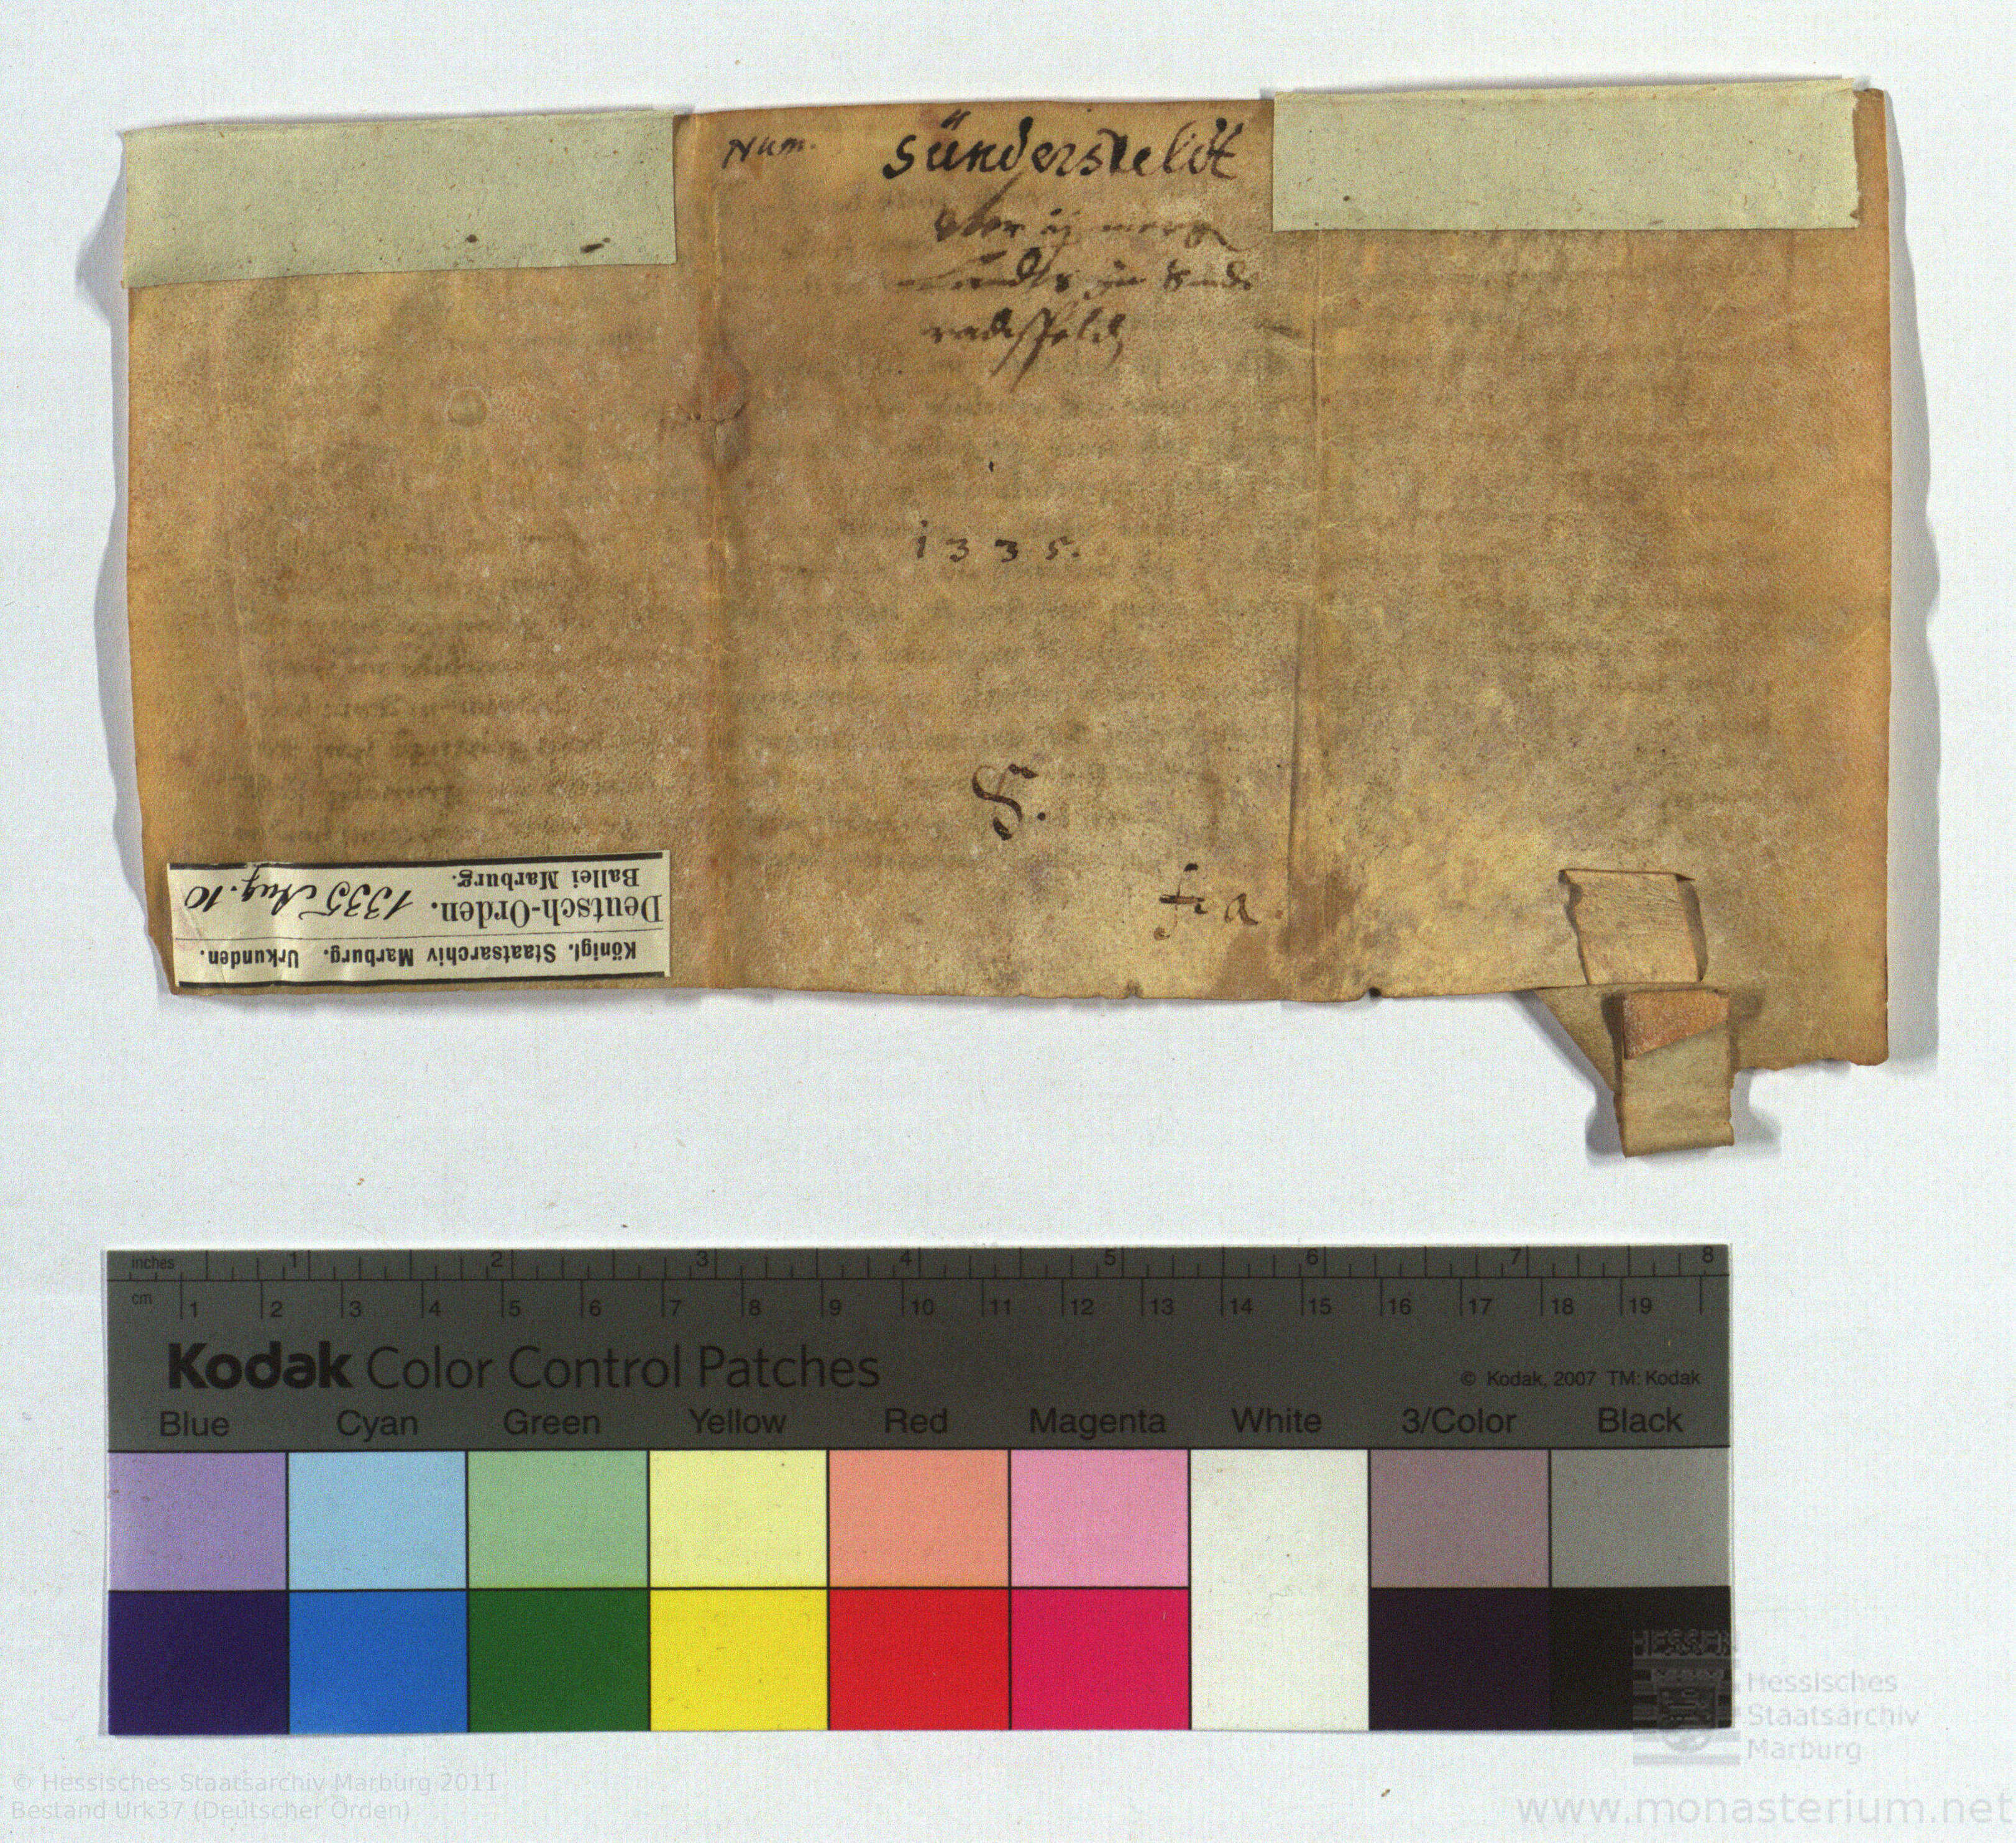 Num. Sündersteldt
1335.
S.
fia.
Königl. Staatsarchiv Marburg. Urkunden.
Deutsch-Orden. 1335 Aug. 10
Ballei Marburg.
inches 1 2 3 4 5 6 7 8
cm 1 2 3 4 5 6 7 8 9 10 11 12 13 14 15 16 17 18 19
Kodak Color Control Patches
© Kodak, 2007 TM: Kodak
Blue Cyan Green Yellow Red Magenta White 3/Color Black
HESSEN
Hessisches
Staatsarchiv
Marburg
© Hessisches Staatsarchiv Marburg 2011
Bestand Urk37 (Deutscher Orden)
www.monasterium.net